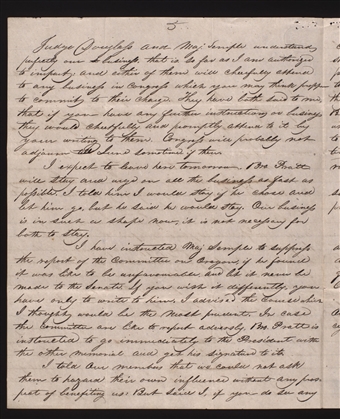 5
Judge Douglass and Maj Semple understand
perfectly our business that is so far as I am authorized
to impart, and either of them will cheerfully attend
to any business in Congress which you may think proper
to commit to their charge. They have both said to me
that if you have any further instructions or business
they would cheerfully and promptly attend to it by
your writing to them. Congress will probably not
adjourn
I expect to leave here tomorrow, Mr Pratt
will stay and urge on all the business as fast as
possible. I told him I would stay if he chose and
let him go, but he said he would stay. Our business
is in such a shape now, it is not necessary for
both to stay.
I have instructed Maj Semple to suppress
the report of the Committee on Oregon, if he found
it was like to be unfavorable, and let it never be
made to the Senate. If you wish it differently, you
have only to write to him. I advised the course which
I thought would be the most prudent. In case
the Committee are like to report adversely, Mr Pratt is
instructed to go immediately to the President with
the other memorial and get his signature to it.
I told our members that we could not ask
them to hazard their own influence without any pros-
pect of benefiting us: But said I, if you do see any